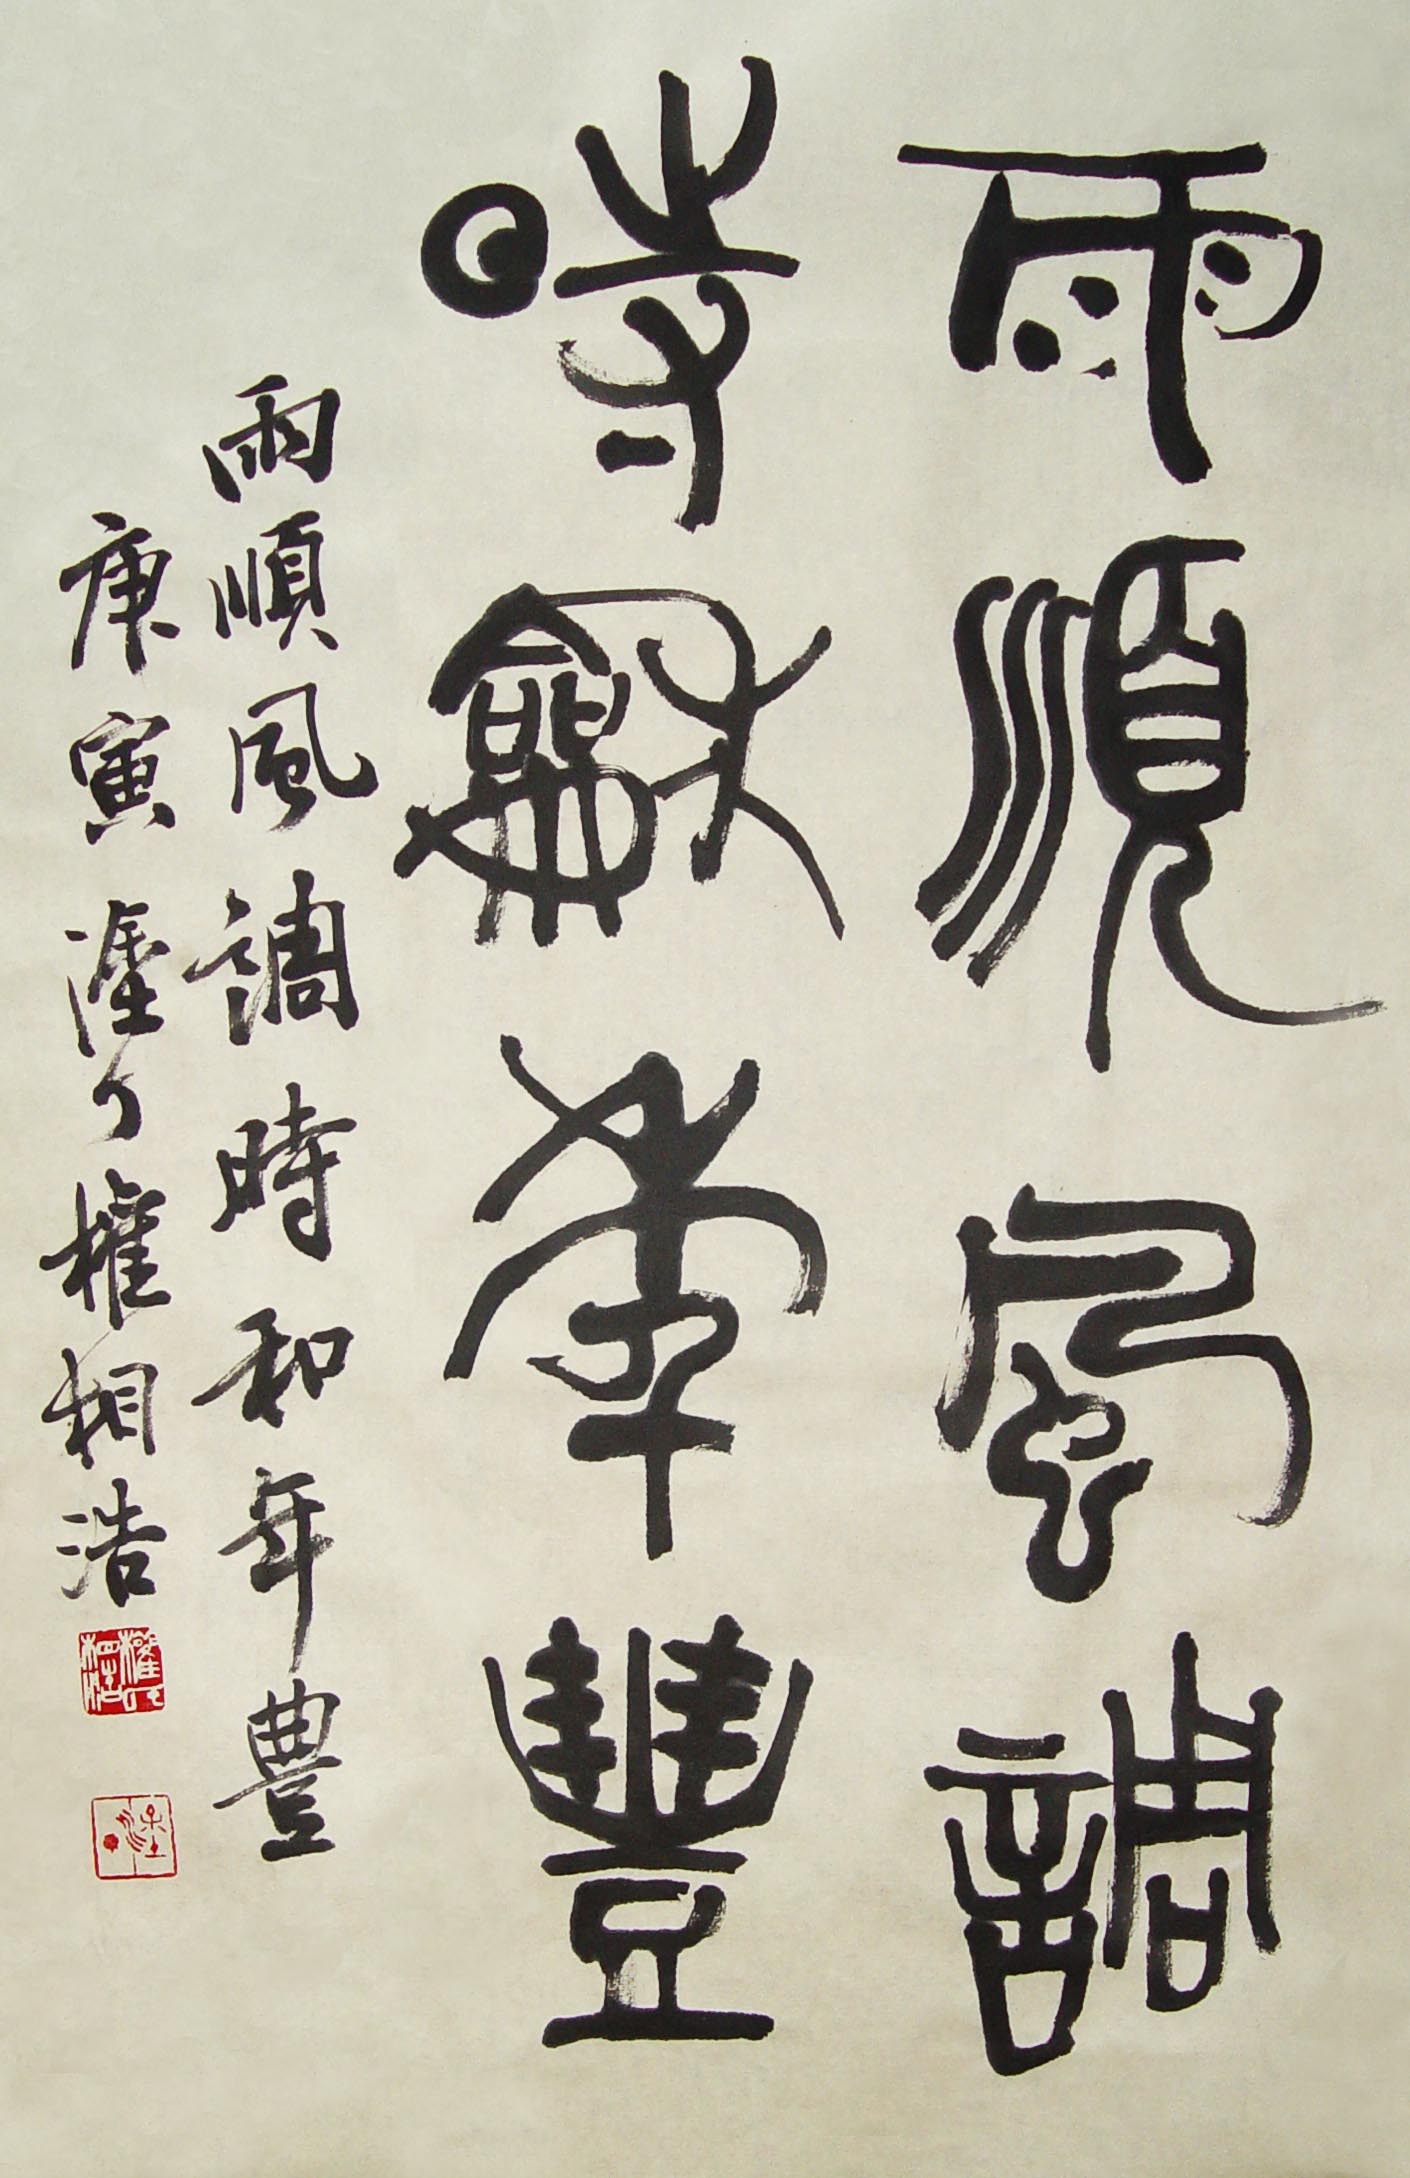 雨順風調
時龢年豐
雨順風調時和年豊
庚寅 權相浩